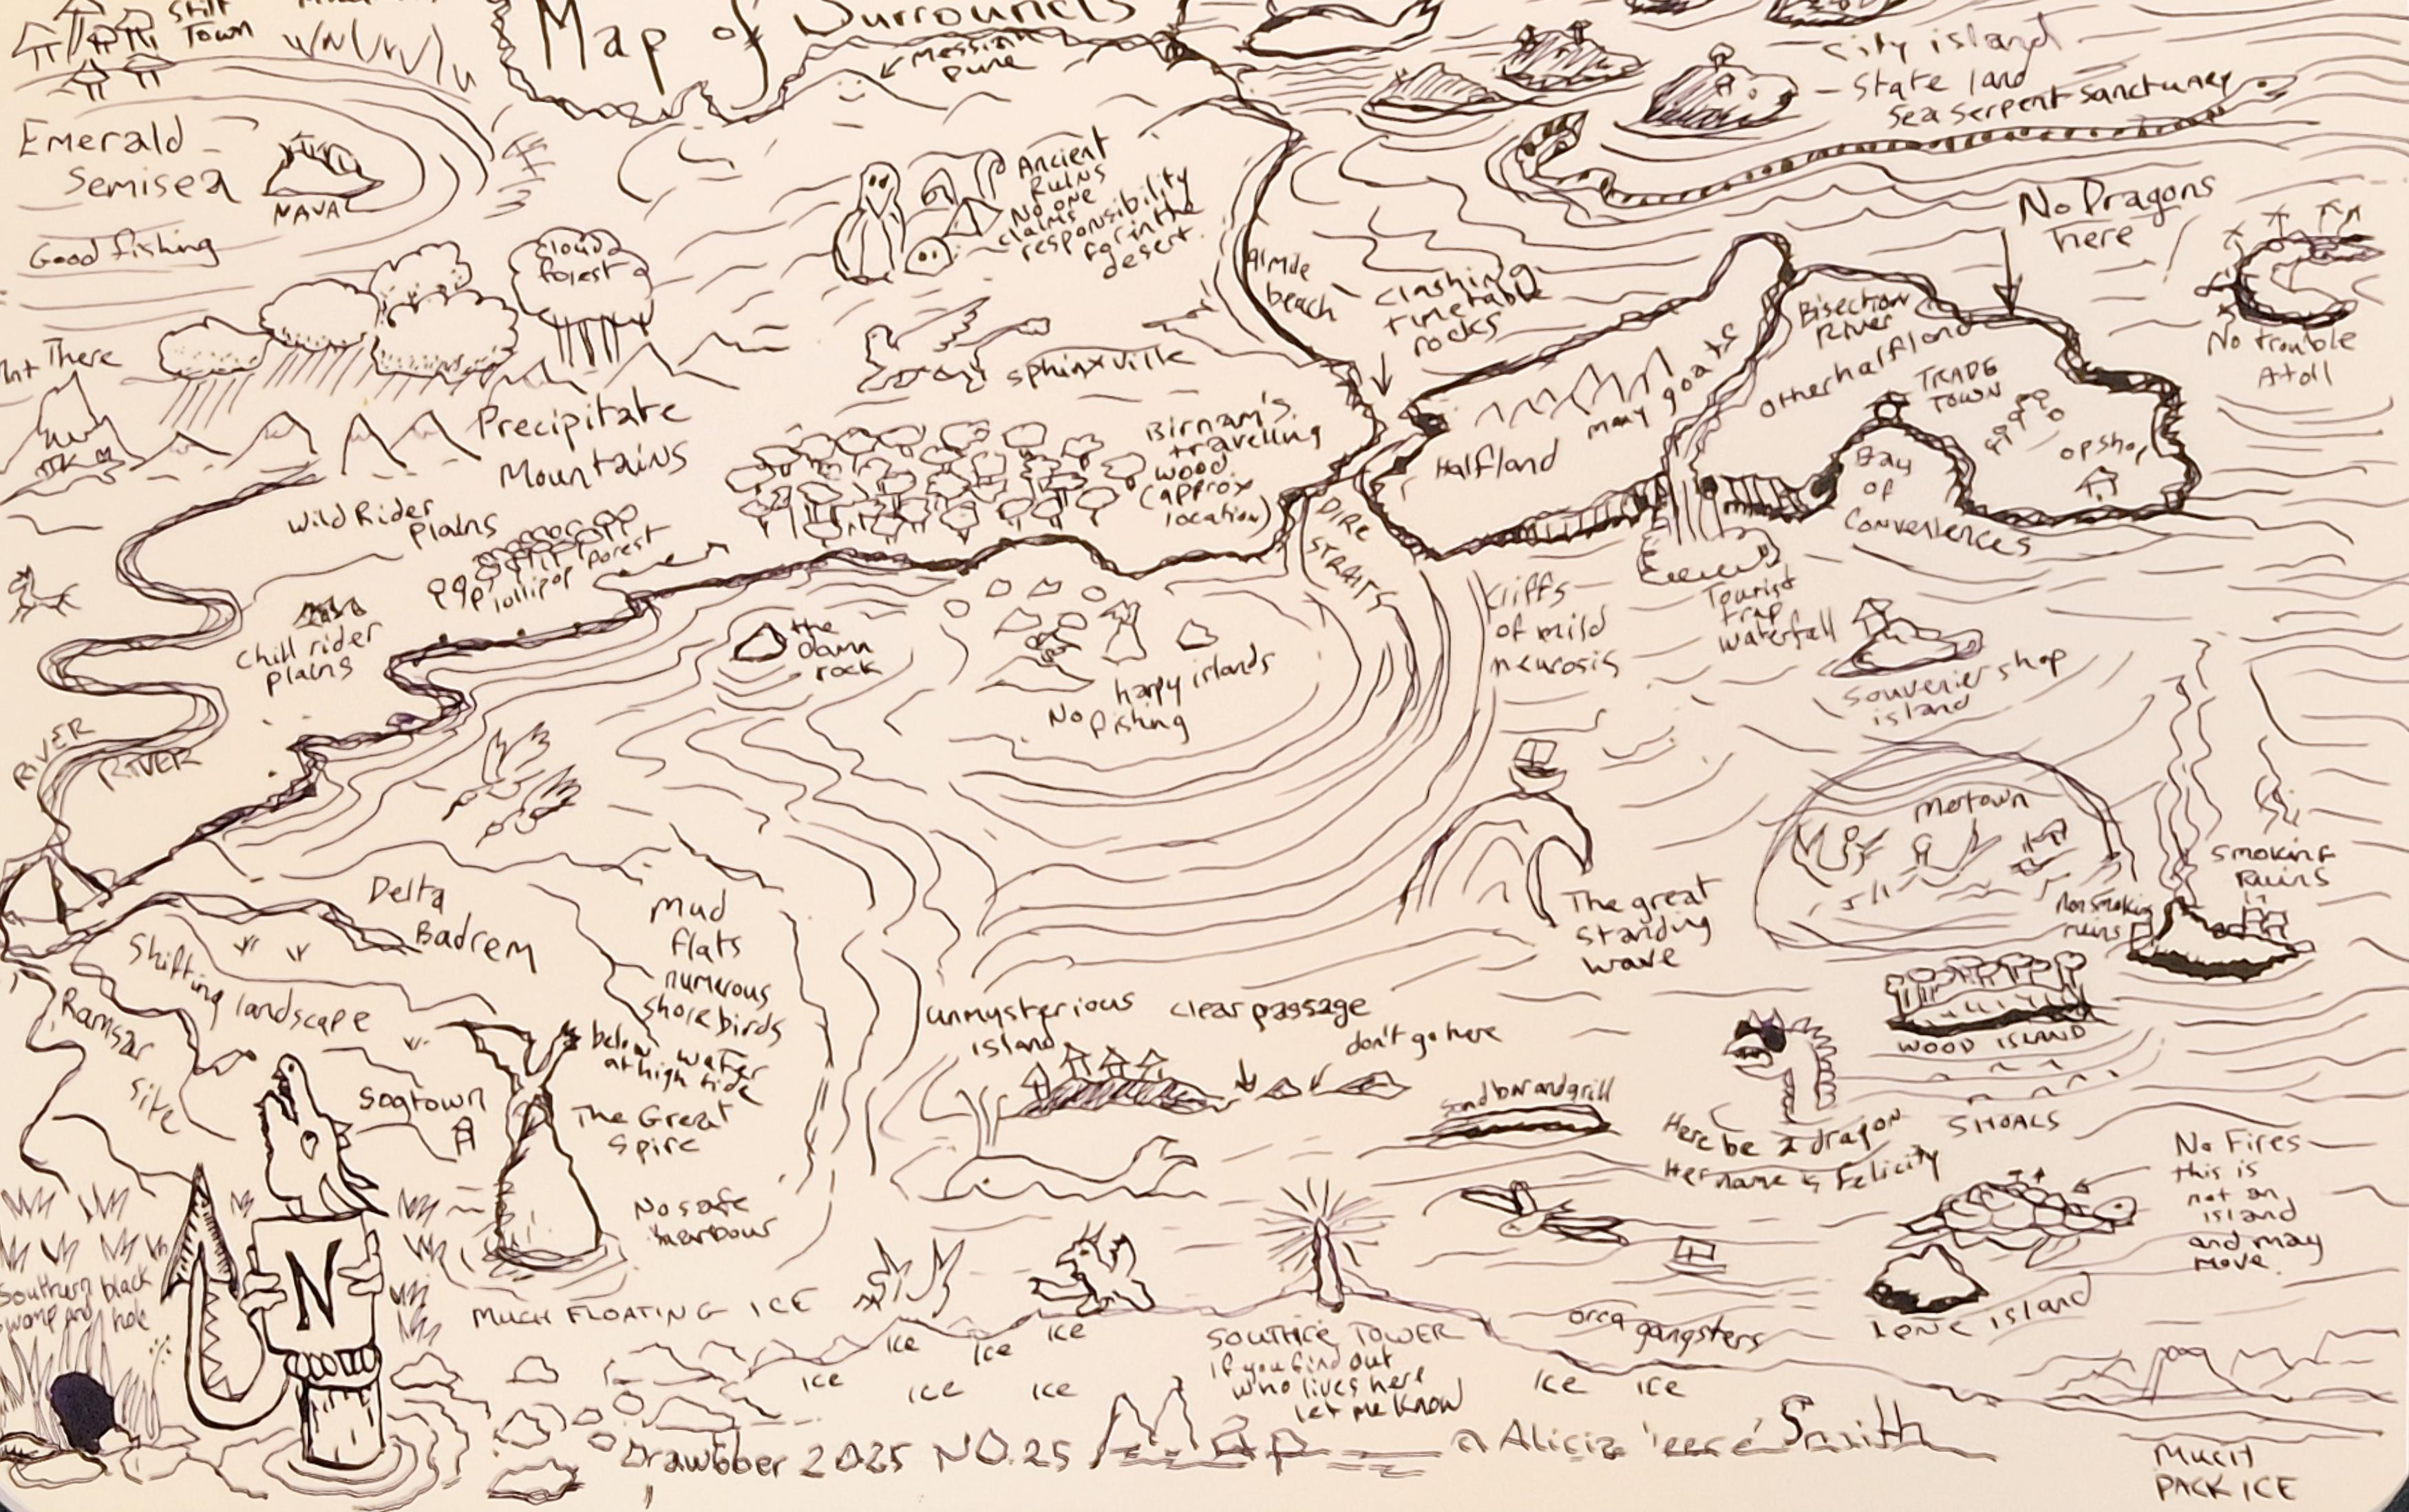 Stilt
Town
Map of Surrounds
Messiah
pune
City island
State land
Sea Serpent Sanctuary
Emerald
Semisea
NAVA
Good fishing
Ancient
Ruins
No one
claims
responsibility
for in the
desert
No Dragons
here
Cloud
forest
9 1 mile
beach
Clashing
timetable
rocks
Bisection
River
No trouble
Atoll
There
Sphinxville
many goats
Otherhalfland
TRADE
TOWN
Precipitate
Mountains
Birnam's
travelling
wood
(approx
location)
Halfland
Bay
of
Conveniences
opshop
Wild Rider
Plains
lollipop forest
DIRE
STRAITS
Chill rider
plains
the
damn
rock
harpy islands
No fishing
Cliffs
of mild
neurosis
Tourist
trap
waterfall
Souvenier shop
island
RIVER
RIVER
Mertown
Smoking
Ruins
Non smoking
ruins
Delta
Badrem
Mud
flats
numerous
shore birds
below water
at high tide
The great
standing
wave
Shifting landscape
Ramsar
Site
unmysterious
island
clear passage
don't go here
WOOD ISLAND
Sogtown
The Great
Spire
Sandbar and grill
Here be a dragon
Her name is Felicity
SHOALS
No safe
harbour
No Fires
this is
not an
island
and may
move.
Southern black
swamp and hole
N
MUCH FLOATING ICE
Lone island
orca gangsters
SOUTHICE TOWER
if you find out
who lives here
let me know
Ice
Ice
Ice
Ice
Ice
Ice
Ice
Ice
Drawtober 2025 NO.25 Map
Smith
Much
PACK ICE